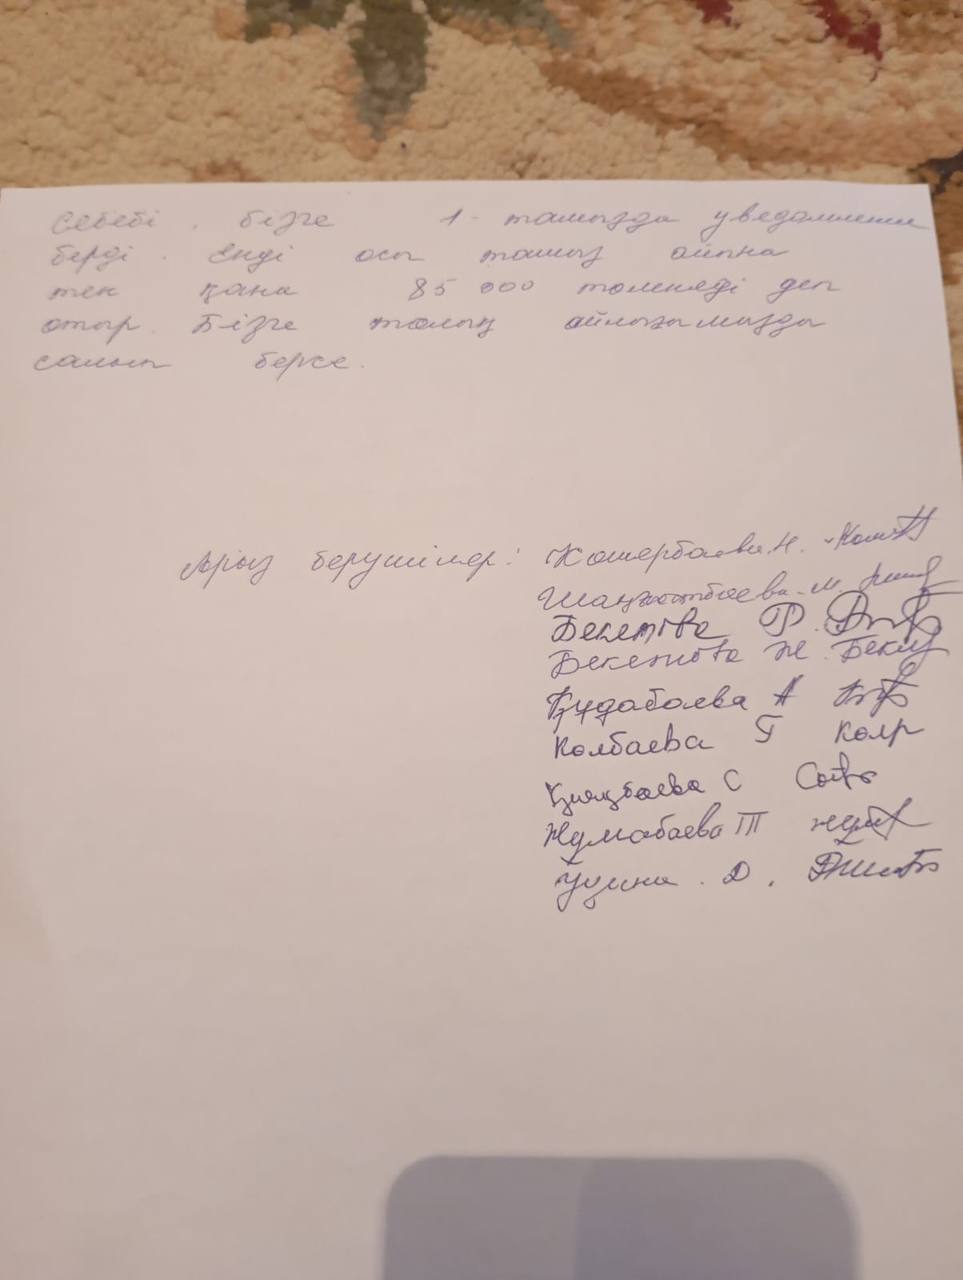 себебі, бізге 1-тамызда уведомление
берді. Енді осы тамыз айына
тек қана 85 000 төленеді деп
отыр. Бізге толық айлығымызды
салып берсе.
Арыз берушілер: Кошербаева Н.
Шаңжотбаева М
Бекетова Ф.
Бекетова Ж. Бекет
Құдабаева А
Колбаева Г Колр
Қиязбаева С
Жумабаева Ш
Д.